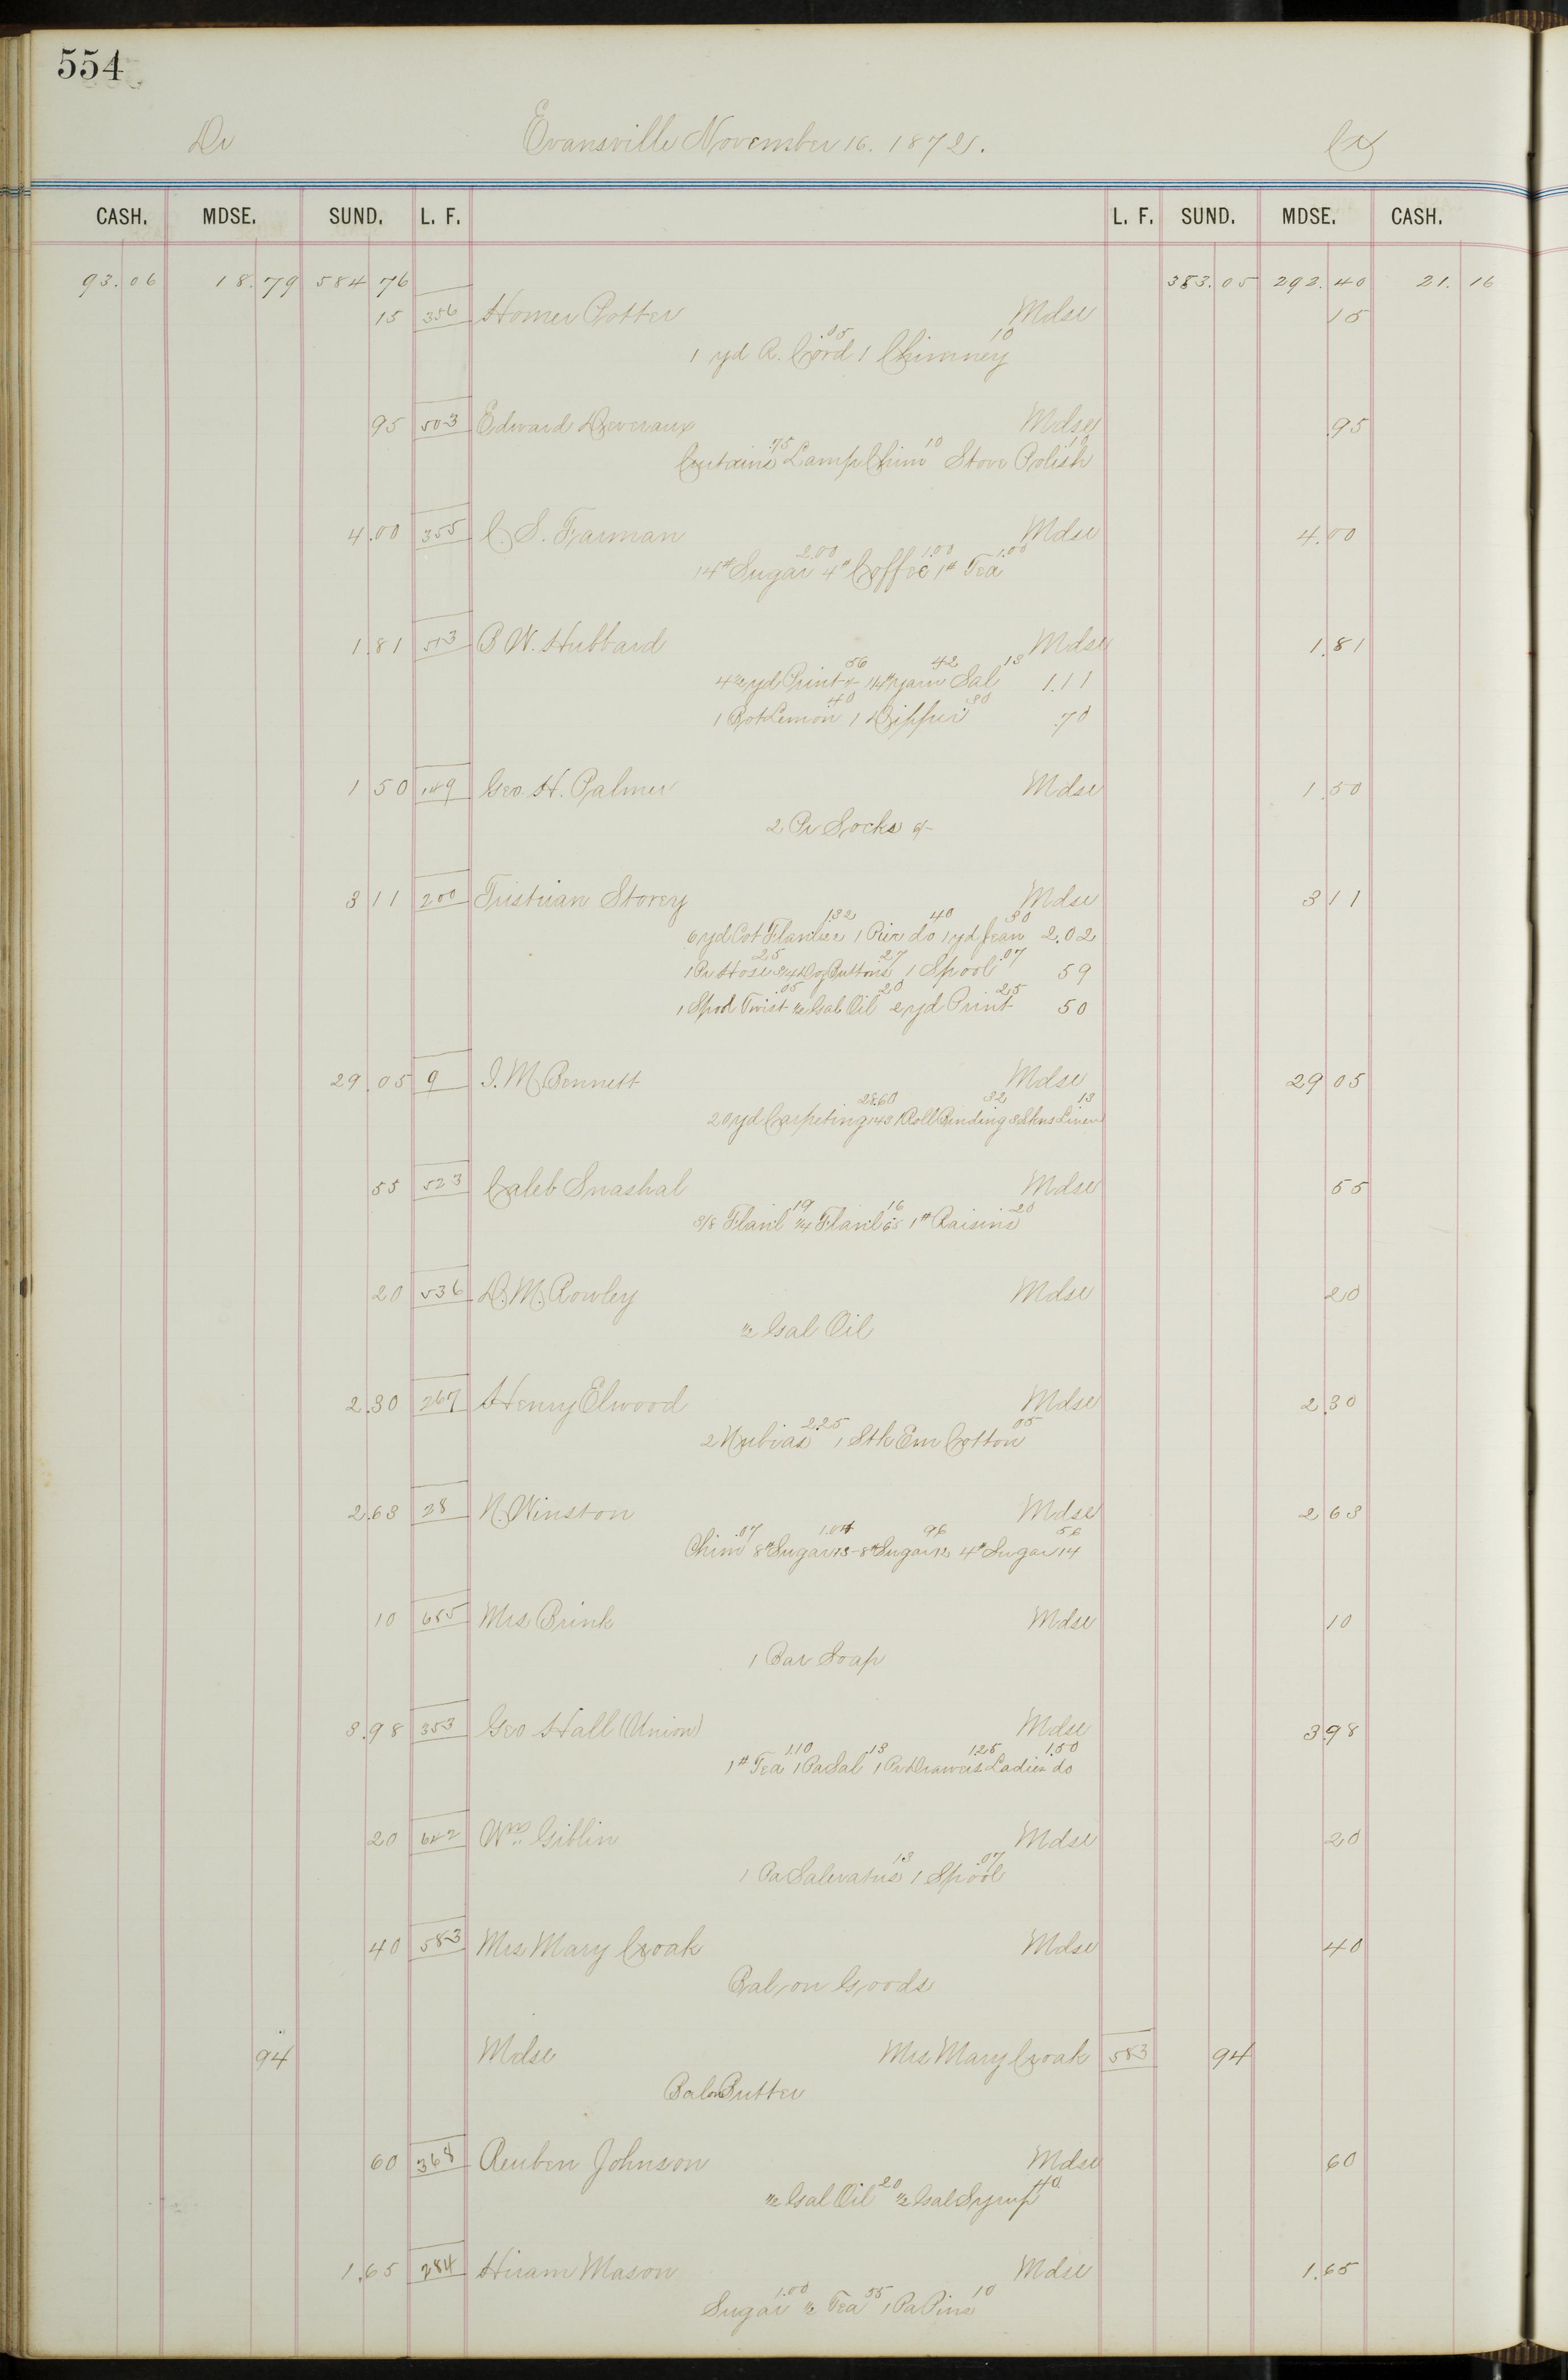 554
Dr Evansville November 16. 1872. Cr
CASH. MDSE. SUND. L. F. L. F. SUND. MDSE. CASH.
93.06 18.79 584 76 383.05 292.40 21.16
15 356 Homer Potter Mdse 15
1 yd R. Cord .05 1 Chimney 10
95 503 Edward Deveraux Mdse .95
Curtains .75 Lamp Chim 10 Stove Polish 10
4.00 355 C. S. Farman Mdse 4.00
14# Sugar 2.00 4# Coffee 1.00 1# Tea 1.00
1.81 513 B W. Hubbard Mdse 1.81
yd Print 56 yarn 42 Sal 13 1.11
1 Bot Lemon 40 1 Dipper 30 .70
1 50 149 Geo. H. Palmer Mdse 1.50
2 Pr Socks
3 11 200 Tristrian Storey Mdse 3 11
6 yd Cot Flanl 1.32 1 do 40 1 yd Jean 30 2.02
1 Pr Hose 25 Doz Buttons 27 1 Spool .07 59
1 Spool Twist .05 1/2 Gal Oil 20 2 yd Print 25 50
29.05 9 I. M. Bennett Mdse 29 05
20 yd Carpeting 143 28.60 1 Roll Binding 32 3 Skns Linen 13
55 523 Caleb Snashal Mdse 55
3/8 Flanl 19 1/4 Flanl 65 16 1# Raisins 20
20 536 D. M. Rowley Mdse 20
1/2 Gal Oil
2.30 267 Henry Elwood Mdse 2.30
2 Nubias 2.25 1 Stk Em Cotton 05
2.63 28 N. Winston Mdse 2 63
Chim .07 8# Sugar 13 1.04 8# Sugar 12 96 4# Sugar 14 56
10 655 Mrs Brink Mdse 10
1 Bar Soap
3.98 353 Geo Hall (Union) Mdse 3.98
1# Tea 1.10 1 Pa Sal .13 1 Pr Drawers 1.25 Ladies do 1.50
20 Wm. Giblin Mdse 20
1 Pa Saleratus 13 1 Spool .07
40 583 Mrs Mary Croak Mdse 40
Bal on Goods
94 Mdse Mrs Mary Croak 583 94
Bal on Butter
60 368 Reuben Johnson Mdse 60
1/2 Gal Oil 20 1/2 Gal Syrup 40
1.65 284 Hiram Mason Mdse 1.65
Sugar 1.00 1/2 Tea 55 1 Pa Pins 10